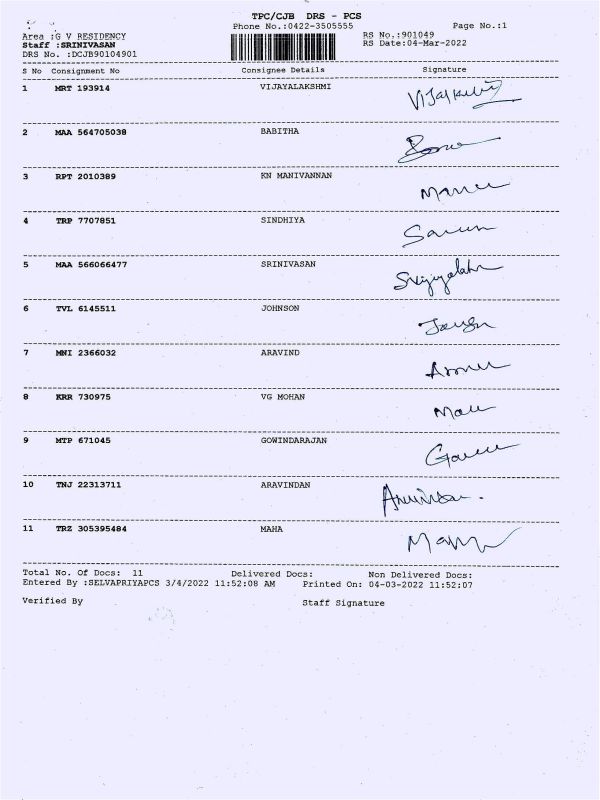 TPC/CJB DRS - PCS
Phone No.:0422-3505555 Page No.:1
Area :G V RESIDENCY RS No.:901049
Staff :SRINIVASAN RS Date:04-Mar-2022
DRS No. :DCJB90104901
S No Consignment No Consignee Details Signature
1 MRT 193914 VIJAYALAKSHMI
2 MAA 564705038 BABITHA
3 RPT 2010389 KN MANIVANNAN
4 TRP 7707851 SINDHIYA
5 MAA 566066477 SRINIVASAN
6 TVL 6145511 JOHNSON
7 MNI 2366032 ARAVIND
8 KRR 730975 VG MOHAN
9 MTP 671045 GOWINDARAJAN
10 TNJ 22313711 ARAVINDAN
11 TRZ 305395484 MAHA
Total No. Of Docs: 11 Delivered Docs: Non Delivered Docs:
Entered By :SELVAPRIYAPCS 3/4/2022 11:52:08 AM Printed On: 04-03-2022 11:52:07
Verified By Staff Signature